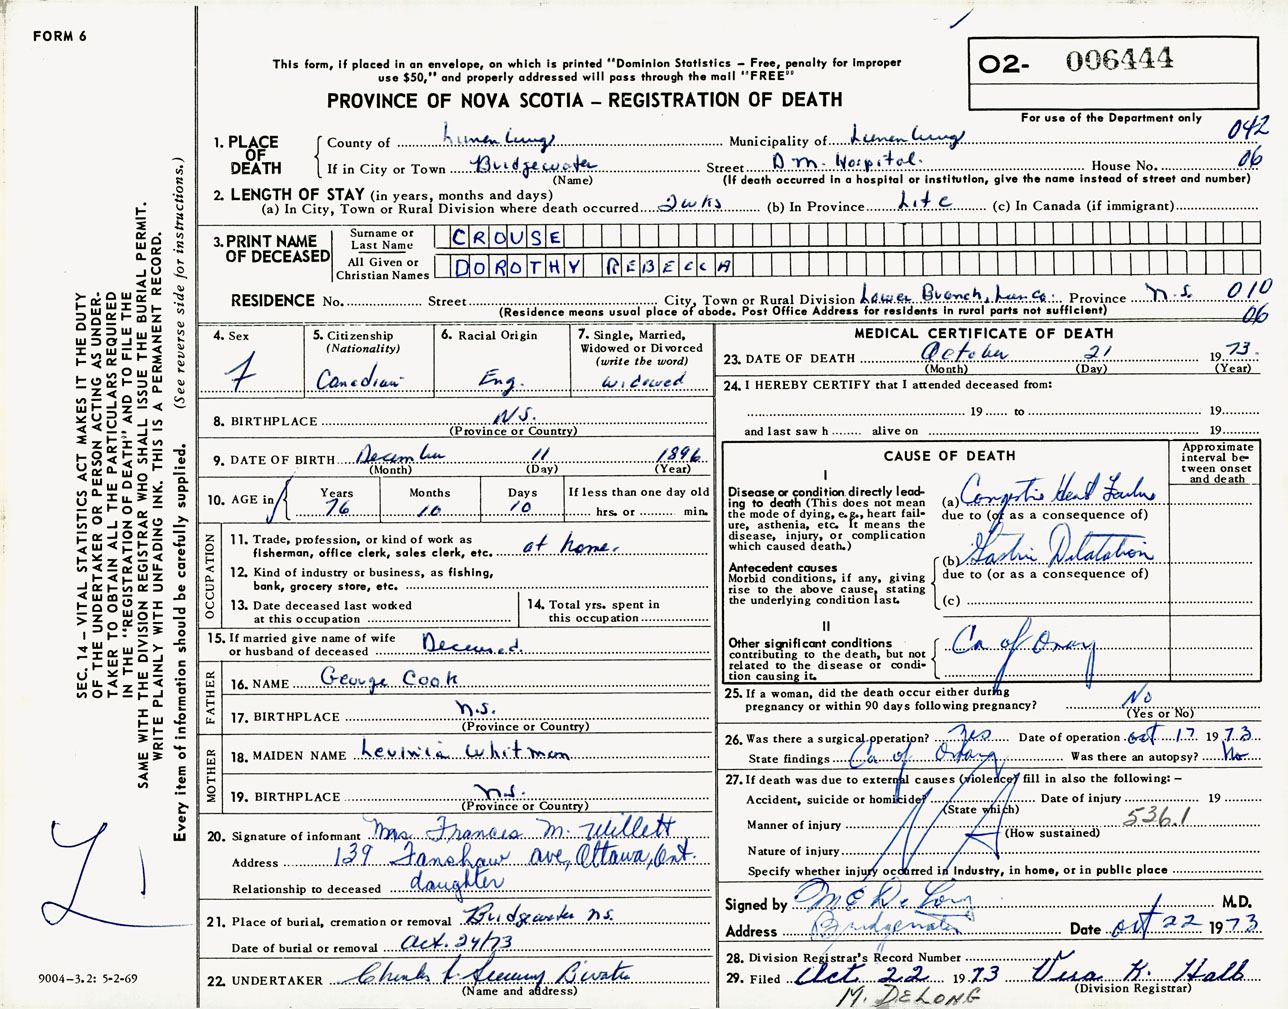 FORM 6
This form, if placed in an envelope, on which is printed "Dominion Statistics – Free, penalty for improper
use $50," and properly addressed will pass through the mail "FREE"
O2- 006444
PROVINCE OF NOVA SCOTIA – REGISTRATION OF DEATH
For use of the Department only
1. PLACE OF DEATH
County of Lunenburg Municipality of Lunenburg 042
If in City or Town Bridgewater Street D.M. Hospital. House No. 06
(Name) (If death occurred in a hospital or institution, give the name instead of street and number)
2. LENGTH OF STAY (in years, months and days)
(a) In City, Town or Rural Division where death occurred 2 wks (b) In Province Life (c) In Canada (if immigrant)
3. PRINT NAME OF DECEASED
Surname or Last Name CROUSE
All Given or Christian Names DOROTHY REBECCA
RESIDENCE No. Street City, Town or Rural Division Lower Branch, Lun. Co. Province N.S. 010
(Residence means usual place of abode. Post Office Address for residents in rural parts not sufficient) 06
4. Sex F
5. Citizenship (Nationality) Canadian
6. Racial Origin Eng.
7. Single, Married, Widowed or Divorced (write the word) widowed
8. BIRTHPLACE N.S.
(Province or Country)
9. DATE OF BIRTH December 11 1896
(Month) (Day) (Year)
10. AGE in Years 76 Months 10 Days 10 If less than one day old
hrs. or min.
OCCUPATION
11. Trade, profession, or kind of work as
fisherman, office clerk, sales clerk, etc. at home.
12. Kind of industry or business, as fishing,
bank, grocery store, etc.
13. Date deceased last worked
at this occupation
14. Total yrs. spent in
this occupation
15. If married give name of wife
or husband of deceased Deceased.
FATHER
16. NAME George Cook
17. BIRTHPLACE N.S.
(Province or Country)
MOTHER
18. MAIDEN NAME Levinia Whitman
19. BIRTHPLACE N.S.
(Province or Country)
20. Signature of informant Mrs. Frances M. Willett
Address 139 Fanshaw ave, Ottawa, Ont.
Relationship to deceased daughter
21. Place of burial, cremation or removal Bridgewater N.S.
Date of burial or removal Oct. 24/73
22. UNDERTAKER Charles B'water
(Name and address)
MEDICAL CERTIFICATE OF DEATH
23. DATE OF DEATH October 21 1973.
(Month) (Day) (Year)
24. I HEREBY CERTIFY that I attended deceased from:
19 to 19
and last saw h alive on 19
CAUSE OF DEATH
Approximate interval between onset and death
I
Disease or condition directly lead-
ing to death (This does not mean
the mode of dying, e.g., heart fail-
ure, asthenia, etc. It means the
disease, injury, or complication
which caused death.)
(a) Congestive Heart Failure
due to (or as a consequence of)
Antecedent causes
Morbid conditions, if any, giving
rise to the above cause, stating
the underlying condition last.
(b) Gastric Dilatation
due to (or as a consequence of)
(c)
II
Other significant conditions
contributing to the death, but not
related to the disease or condi-
tion causing it.
Ca of Ovary
25. If a woman, did the death occur either during
pregnancy or within 90 days following pregnancy? No
(Yes or No)
26. Was there a surgical operation? Yes Date of operation Oct 17 1973
State findings Ca of Ovary Was there an autopsy? No
27. If death was due to external causes (violence) fill in also the following: –
Accident, suicide or homicide? Date of injury 19
(State which)
Manner of injury 536.1
(How sustained)
Nature of injury
Specify whether injury occurred in industry, in home, or in public place
Signed by M E DeLong M.D.
Address Bridgewater Date Oct 22 1973
28. Division Registrar's Record Number
29. Filed Oct 22 1973 Vera K. Hall
(Division Registrar)
M. DELONG
SEC. 14 – VITAL STATISTICS ACT MAKES IT THE DUTY
OF THE UNDERTAKER OR PERSON ACTING AS UNDER-
TAKER TO OBTAIN ALL THE PARTICULARS REQUIRED
IN THE "REGISTRATION OF DEATH" AND TO FILE THE
SAME WITH THE DIVISION REGISTRAR WHO SHALL ISSUE THE BURIAL PERMIT.
WRITE PLAINLY WITH UNFADING INK. THIS IS A PERMANENT RECORD.
Every item of information should be carefully supplied. (See reverse side for instructions.)
9004–3.2: 5-2-69